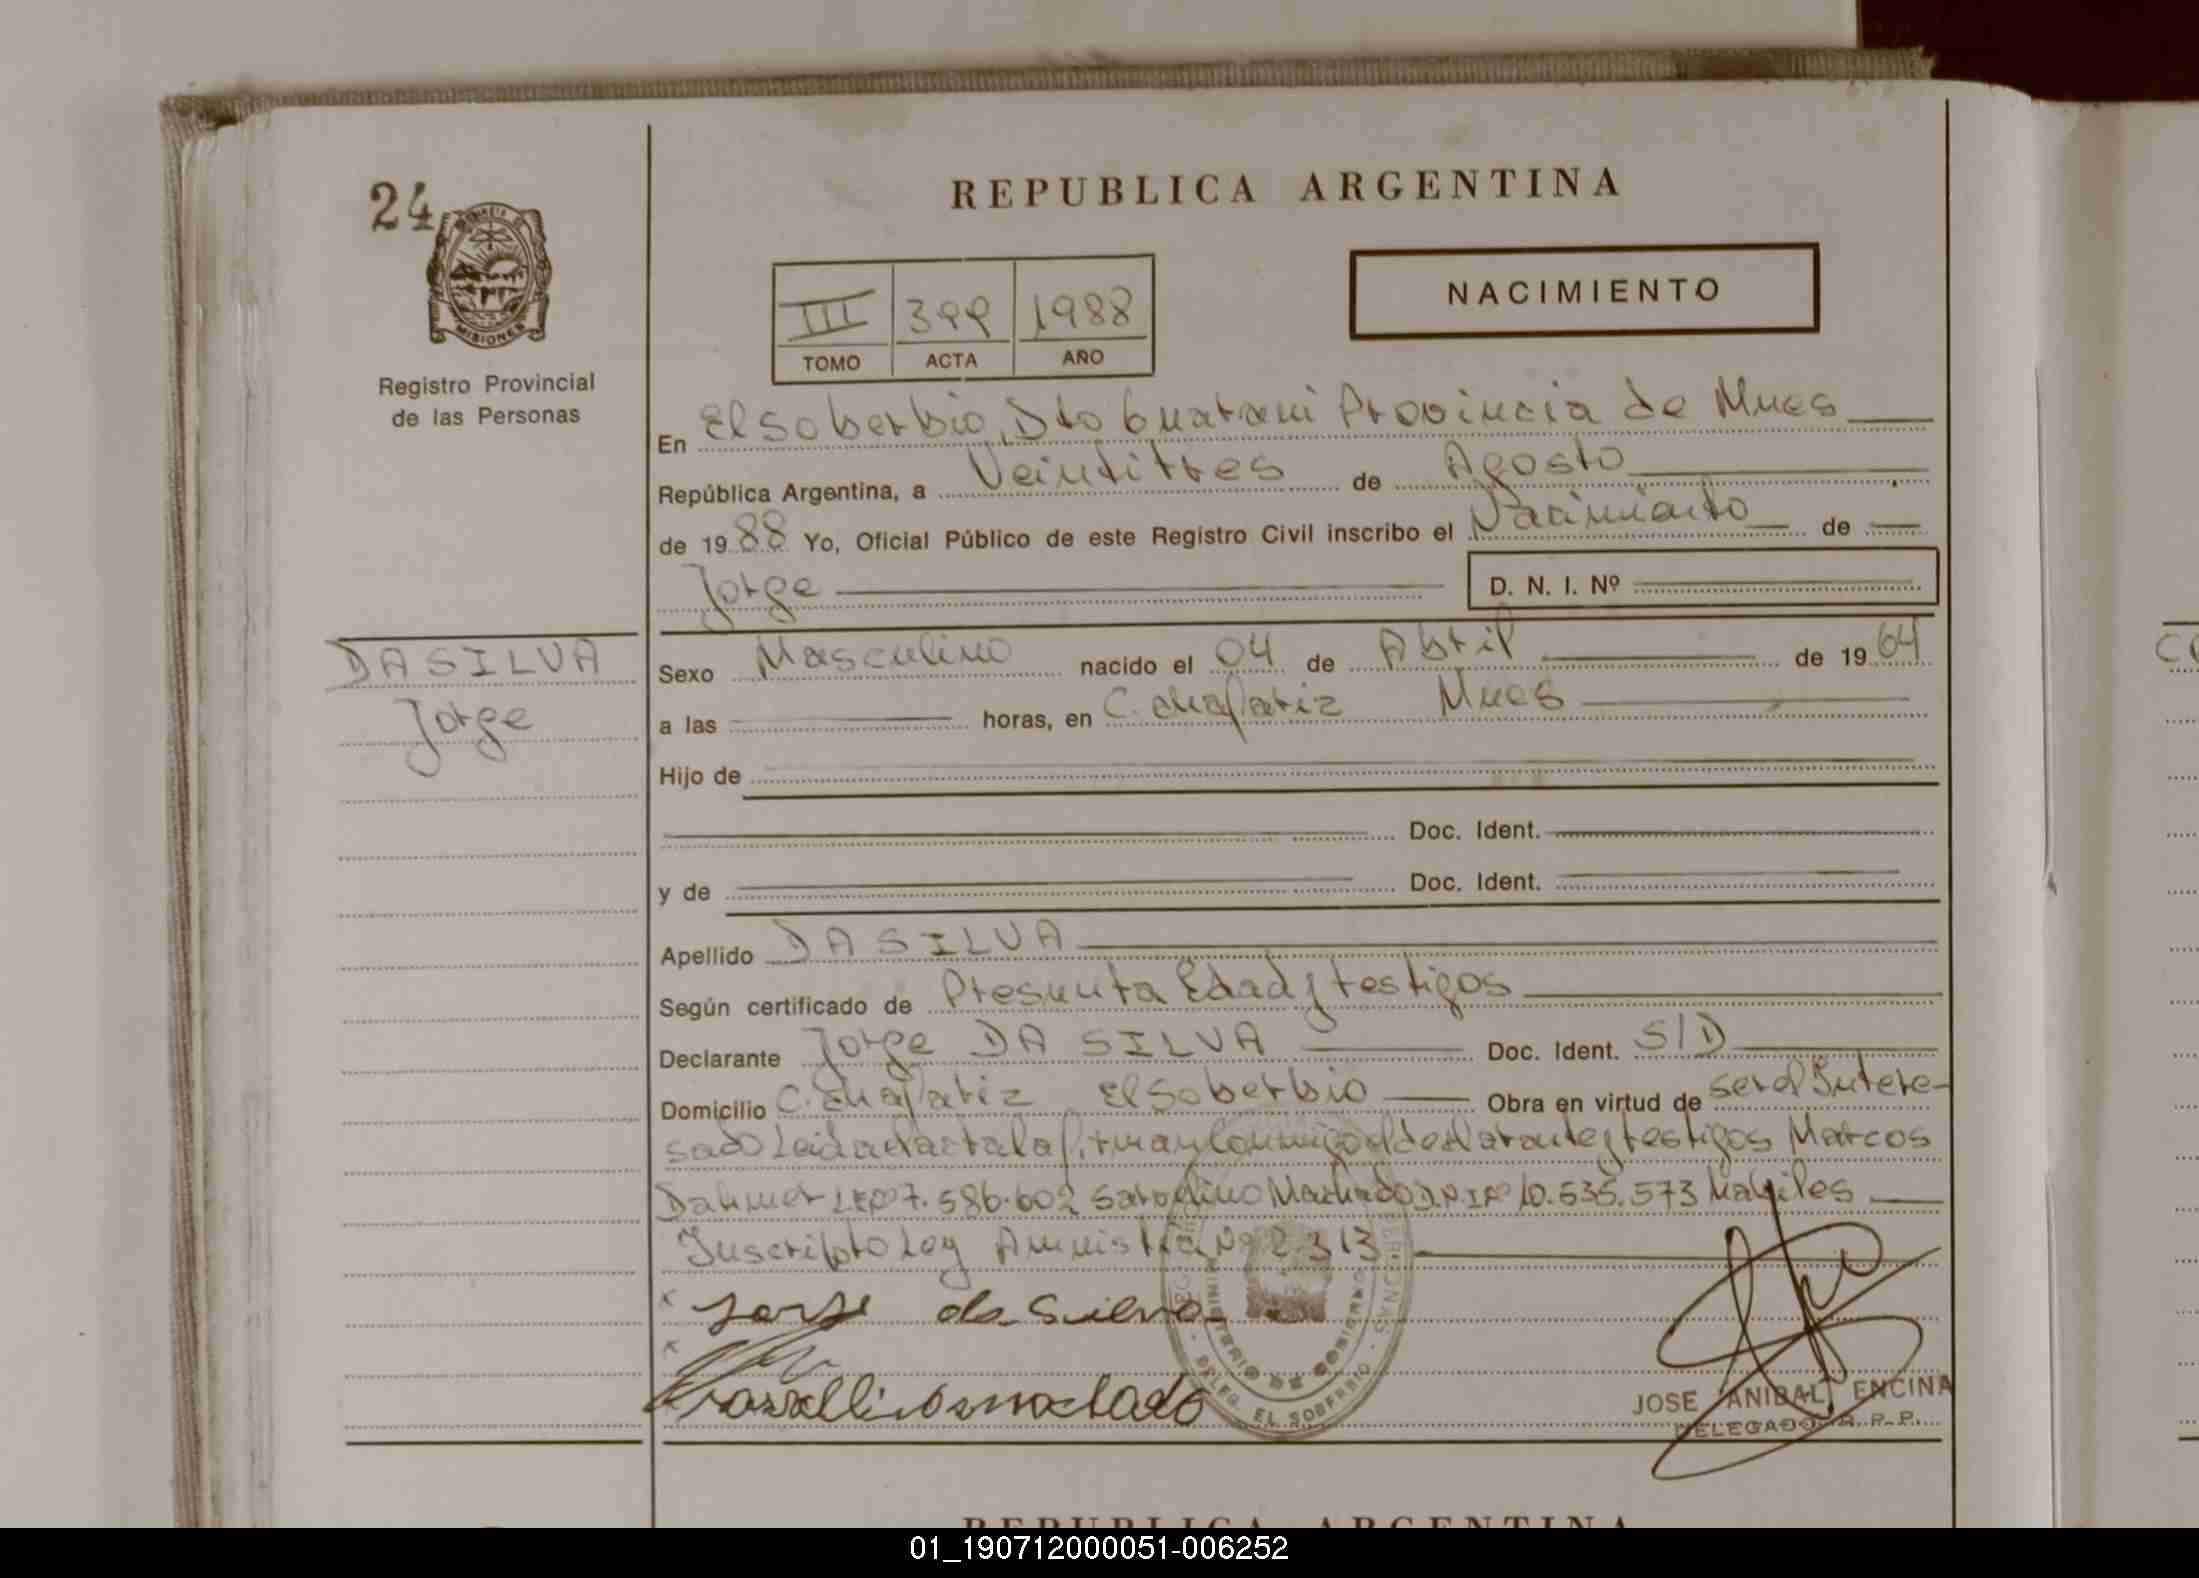 24
MISIONES
Registro Provincial
de las Personas
REPUBLICA ARGENTINA
III 399 1988
TOMO ACTA AÑO
NACIMIENTO
En El Soberbio, Dto Guarani Provincia de Mnes
República Argentina, a Veintitres de Agosto
de 1988 Yo, Oficial Público de este Registro Civil inscribo el Nacimiento de
Jorge D. N. I. Nº
DA SILVA
Jorge
Sexo Masculino nacido el 04 de Abril de 1964
a las horas, en C. Chafariz Mnes
Hijo de
Doc. Ident.
y de Doc. Ident.
Apellido DA SILVA
Según certificado de Presunta Edad y testigos
Declarante Jorge DA SILVA Doc. Ident. S/D
Domicilio C. Chafariz El Soberbio Obra en virtud de ser el Intere-
sado Leida el acta la firman conmigo el declarante y testigos Marcos
Dahmer LE Nº 7.586.602 Machado D.N.I Nº 10.535.573 habiles
Inscripto Ley Amnistia Nº 2.313
x Jorge da Silva
x
machado
DELEG. EL SOBERBIO
MINISTERIO DE GOBIERNO
JOSE ANIBAL ENCINA
DELEGADO R. P. P.
REPUBLICA ARGENTINA
01_190712000051-006252